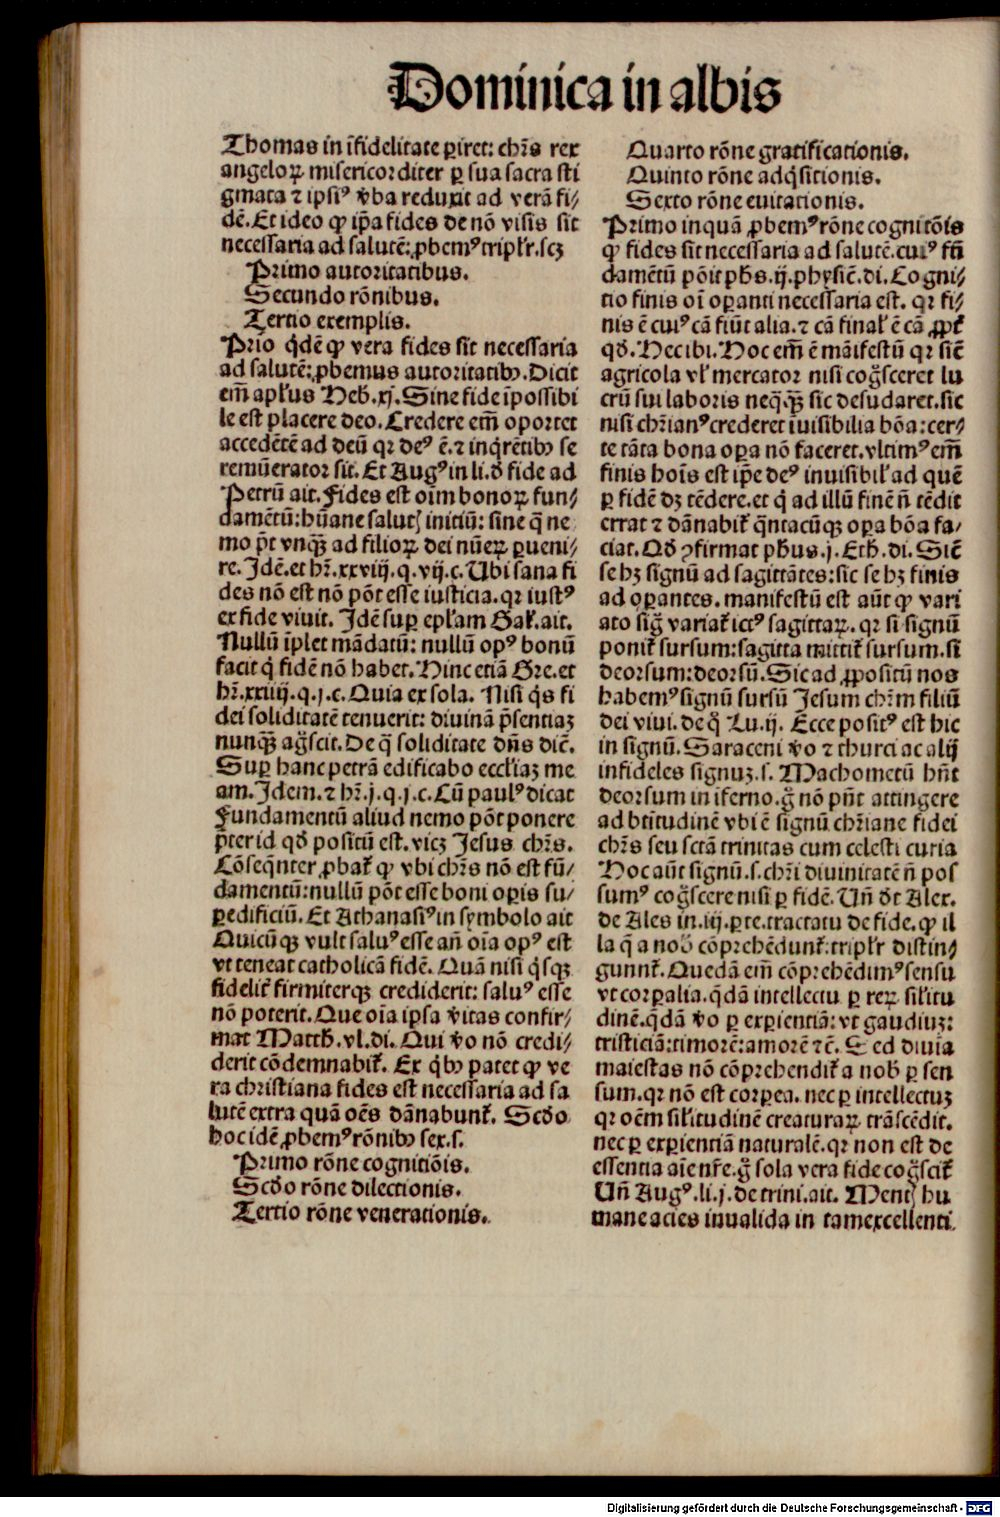 Dominica in albis
Thomas in īfidelitate ꝑiret: chr̄s rex
angeloꝝ misericorditer ꝑ sua sacra sti
gmata ⁊ ipsiꝰ v̄ba reduxit ad verā fi⸗
dē. Et ideo ꝙ ip̄a fides de nō visis sit
necessaria ad salutē: ꝓbemꝰ triplr̄. scꝫ
Primo autoritatibus.
Secundo rōnibus.
Tertio exemplis.
Prio q̇dē ꝙ vera fides sit necessaria
ad salutē: ꝓbemus autoritatibꝰ. Dicit
em̄ apl'us Heb̄. xj. Sine fide īpossibi
le est placere deo. Credere em̄ oportet
accedētē ad deū qꝛ deꝰ ē. ⁊ inq̇rētibꝰ se
remūerator sit. Et Augꝰ in li. d̄ fide ad
Petrū ait. Fides est oīm bonoꝝ fun⸗
damētū: hūane salutꝭ initiū: sine q̄ ne
mo pōt vnꝙ̄ ad filioꝝ dei nūeꝝ ꝑueni⸗
re. Idē. et hr̄. xxviij. q. vij. c. Ubi sana fi
des nō est nō pōt esse iusticia. qꝛ iustꝰ
ex fide viuit. Idē suꝑ epl'am Gal'. ait.
Nullū īplet mādatū: nullū opꝰ bonū
facit q̇ fidē nō habet. Hinc etiā Gre. et
hr̄. xxiiij. q. j. c. Quia ex sola. Nisi q̇s fi
dei soliditatē tenuerit: diuinā p̄sentiaꝫ
nunꝙ̄ ag̃scit. De q̄ soliditate dn̄s dic̄.
Suꝑ hanc petrā edificabo eccl'iaꝫ me
am. Idem. ⁊ hr̄. j. q. j. c. Cū paulꝰ dicat
Fundamentū aliud nemo pōt ponere
p̄ter id qd̄ positū est. vicꝫ Jesus chr̄s.
Cōseq̄nter ꝓbat̄ ꝙ vbi chr̄s nō est fū⸗
damentū: nullū pōt esse boni oꝑis su⸗
ꝑedificiū. Et Athanasiꝰ in symbolo ait
Quicūqꝫ vult saluꝰ esse an̄ oīa opꝰ est
vt teneat catholicā fidē. Quā nisi q̇sqꝫ
fidelit̄ firmiterqꝫ crediderit: saluꝰ esse
nō poterit. Que oīa ip̄sa v̄itas confir⸗
mat Matth̄. vl. di. Qui v̄o nō credi⸗
derit cōdemnabit̄. Ex q̇bꝰ patet ꝙ ve
ra christiana fides est necessaria ad sa
lutē extra quā oēs dānabunt̄. Scd̄o
hoc idē ꝓbemꝰ rōnibꝰ sex. s.
Primo rōne cognitiōis.
Scd̄o rōne dilectionis.
Tertio rōne venerationis.
Quarto rōne gratificationis.
Quinto rōne adq̇sitionis.
Sexto rōne euitationis.
Primo inquā ꝓbemꝰ rōne cognitōis
ꝙ fides sit necessaria ad salutē. cuiꝰ fū
damētū pōit ph̄s. ij. physic̄. di. Cogni⸗
tio finis oī oꝑanti necessaria est. qꝛ fi⸗
nis ē cuiꝰ cā fiūt alia. ⁊ cā final' ē cā ꝓpt̄
qd̄. Hec ibi. Hoc em̄ ē māifestū qꝛ sic̄
agricola vl' mercator nisi cog̃sceret lu
crū sui laboris neq̄ꝙ̄ sic desudaret. sic
nisi chr̄ianꝰ crederet īuisibilia bōa: cer⸗
te tāta bona oꝑa nō faceret. vltimꝰ em̄
finis hoīs est ip̄e deꝰ inuisibil' ad quē
ꝑ fidē dꝫ tēdere. et q̇ ad illū finē n̄ tēdit
errat ⁊ dānabit̄ q̄ntacūqꝫ oꝑa bōa fa⸗
ciat. Qd̄ ꝯfirmat ph̄us. j. Eth̄. di. Sic̄
se hꝫ signū ad sagittātes: sic se hꝫ finis
ad oꝑantes. manifestū est aūt ꝙ vari
ato sig̃ variat̄ ictꝰ sagittaꝝ. qꝛ si signū
ponit̄ sursum: sagitta mittit̄ sursum. si
deorsum: deorsū. Sic ad ꝓpositū nos
habemꝰ signū sursū Jesum chr̄m filiū
dei viui. de q̊ Lu. ij. Ecce positꝰ est hic
in signū. Saraceni v̄o ⁊ thurci ac alij
infideles signuꝫ. s. Machometū hn̄t
deorsum in iferno. g̊ nō pn̄t attingere
ad btītudinē vbi ē signū chr̄iane fidei
chr̄s seu sctā trinitas cum celesti curia
Hoc aūt signū. s. chr̄i diuinitatē n̄ pos
sumꝰ cog̃scere nisi ꝑ fidē. Un̄ d̄t Alex.
de Ales in. iij. ꝑte. tractatu de fide. ꝙ il
la q̄ a nob̄ cōprehēdunt̄: tripl'r disting⸗
gunnt̄. Quedā em̄ cōprehēdimꝰ sensu
vt corꝑalia. q̄dā intellectu ꝑ reꝝ sil'itu
dinē. q̄dā v̄o ꝑ exꝑientiā: vt gaudiuꝫ:
tristiciā: timorē: amorē ⁊c̄. Sed diuīa
maiestas nō cōprehendit̄ a nob̄ ꝑ sen
sum. qꝛ nō est corꝑea. nec ꝑ intellectuꝫ
qꝛ oēm sil'itudinē creaturaꝝ trāscēdit.
nec ꝑ exꝑientiā naturalē. qꝛ non est de
essentia aīe nr̄e. g̊ sola vera fide cog̃scit̄
Un̄ Augꝰ. li. j. de trini. ait. Mentꝭ hu
mane acies inualida in tam excellenti
Digitalisierung gefördert durch die Deutsche Forschungsgemeinschaft - DFG